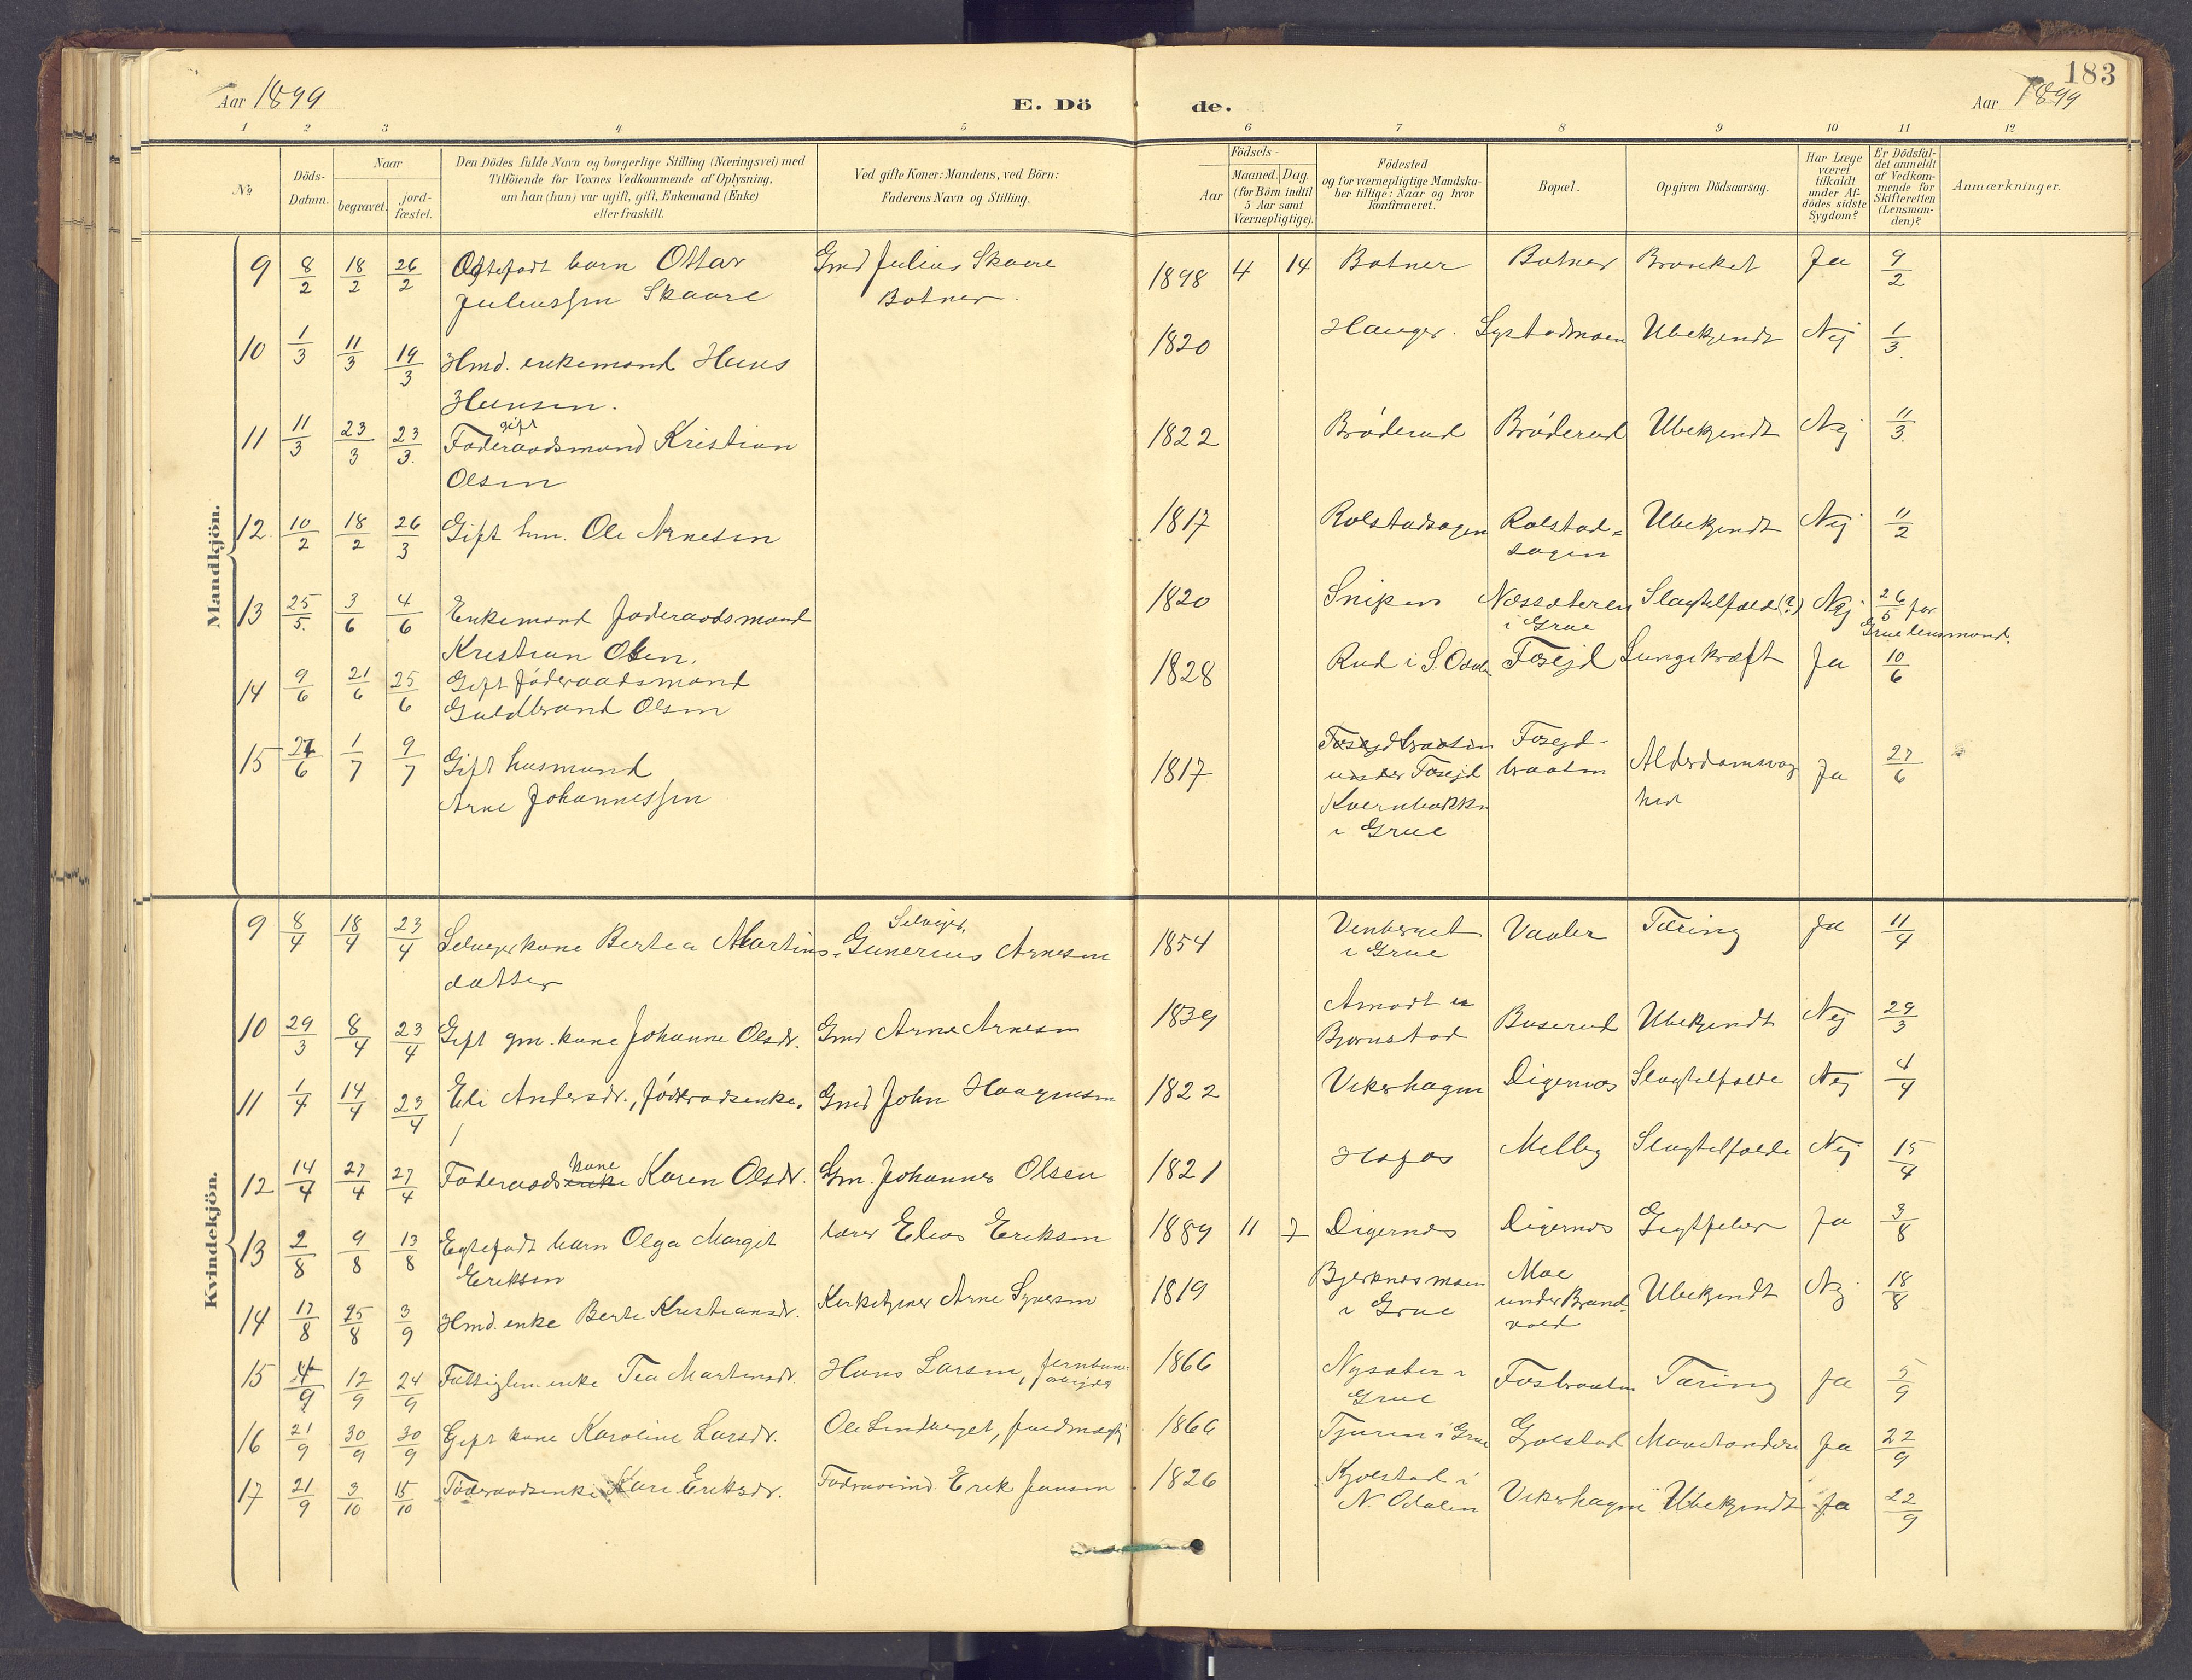 183
Aar 1899
E. Dö de.
Aar 1899
1 2 3 4 5 6 7 8 9 10 11 12
No
Döds-Datum.
Naar
begravet.
jord-fæstet.
Den Dödes fulde Navn og borgerlige Stilling (Næringsvei) med
Tilföiende for Voxnes Vedkommende af Oplysning,
om han (hun) var ugift, gift, Enkemand (Enke)
eller fraskilt.
Ved gifte Koner: Mandens, ved Börn:
Faderens Navn og Stilling.
Födsels-
Aar
Maaned. Dag.
(for Börn indtil
5 Aar samt
Værnepligtige).
Födested
og for værnepligtige Mandska-
ber tillige: Naar og hvor
konfirmeret.
Bopæl.
Opgiven Dödsaarsag.
Har Læge
været
tilkaldt
under Af-
dödes sidste
Sygdom?
Er Dödsfal-
det anmeldt
af Vedkom-
mende for
Skifteretten
(Lensman-
den)?
Anmærkninger.
Mandkjön.
9 8/2 18/2 26/2 Egtefødt barn Ottar Gmd Julius Skaare 1898 4 14 Botner Botner Bronket Ja 9/2
Juliussen Skaare Botner.
10 1/3 11/3 19/3 Hmd. enkemand Hans 1820 Hauger. Systadmoen Ubekjendt Nej 1/3
Hansen.
gift
11 11/3 23/3 23/3 Føderaadsmand Kristian 1822 Bröderud Bröderud Ubekjendt Nej 11/3
Olsen
12. 10/2 18/2 26/3 Gift hm. Ole Arnesen 1817 Rolstadsagen Rolstad- Ubekjendt Nej 11/2
sagen
13 25/5 3/6 4/6 Enkemand føderaadsmand 1820 Snipen Næssæteren Slagtilfælde(?) Nej 26/5 for
Kristian Olsen. i Grue Grue lensmand.
14 9/6 21/6 25/6 Gift føderaadsmand 1828 Rud i S. Odalen Fosejd Lungekræft Ja 10/6
Guldbrand Olsen
15 27/6 1/7 9/7 Gift husmand 1817 Fosejdbraaten Fosejd- Alderdomssvag Ja 27/6
Arne Johannessen under Fosejd braaten hed
Kvernbakken
i Grue
Kvindekjön.
Selvejer,
9 8/4 18/4 23/4 Selvejerkone Bertea Martins- Gunerius Arnesen 1854 Venberget Vaaler Tæring Ja 11/4
datter i Grue
10 29/3 8/4 23/4 Gift gm. kone Johanne Olsdr. Gmd Arne Arnesen 1839 Buserud Ubekjendt Nej 29/3
Bjørnstad
11 1/4 14/4 23/4 Eli Andersdr., føderadsenke. Gmd John Haagensen 1822 Vikerhagen Digernæs Slagtilfælde Nej 4/4
kone
12 14/4 27/4 27/4 Føderaadsenke Karen Olsdr. Gm. Johannes Olsen 1821 Hofos Melby Slagtilfælde Nej 15/4
13 2/8 9/8 13/8 Egtefødt barn Olga Margit lærer Elias Eriksen 1889 11 7 Digernæs Digernæs Gigtfeber Ja 3/8
Eriksen
14 17/8 25/8 3/9 Hmd. enke Berte Kristiansdr. Kirketjener Arne Syversen 1819 Bjerknesmoen Moe Ubekjendt Nej 18/8
i Grue under Brand
vold
15 4/9 12/9 24/9 Fattiglem enke Tea Martinsdr. Hans Larsen, jernbane- 1866 Nysæter i Fosbraaten Tæring Ja 5/9
arbejder Grue
16 21/9 30/9 30/9 Gift kone Karoline Larsdr. Ole Lindberget, 1866 Tjuren i Grue Gjølstad Ja 22/9
17 21/9 3/10 15/10 Føderaadsenke Kari Eriksdr. Erik Jansen 1826 Kjølstad i Vikerhagen Ubekjendt Ja 22/9
N. Odalen